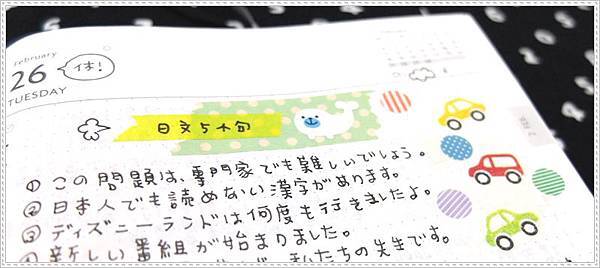 February
26
休!
TUESDAY
日文5小句
① この問題は、専門家でも難しいでしょう。
② 日本人でも読めない漢字があります。
③ ディズニーランドは何度も行きましたよ。
④ 新しい番組が始まりました。
私たちの先生です。